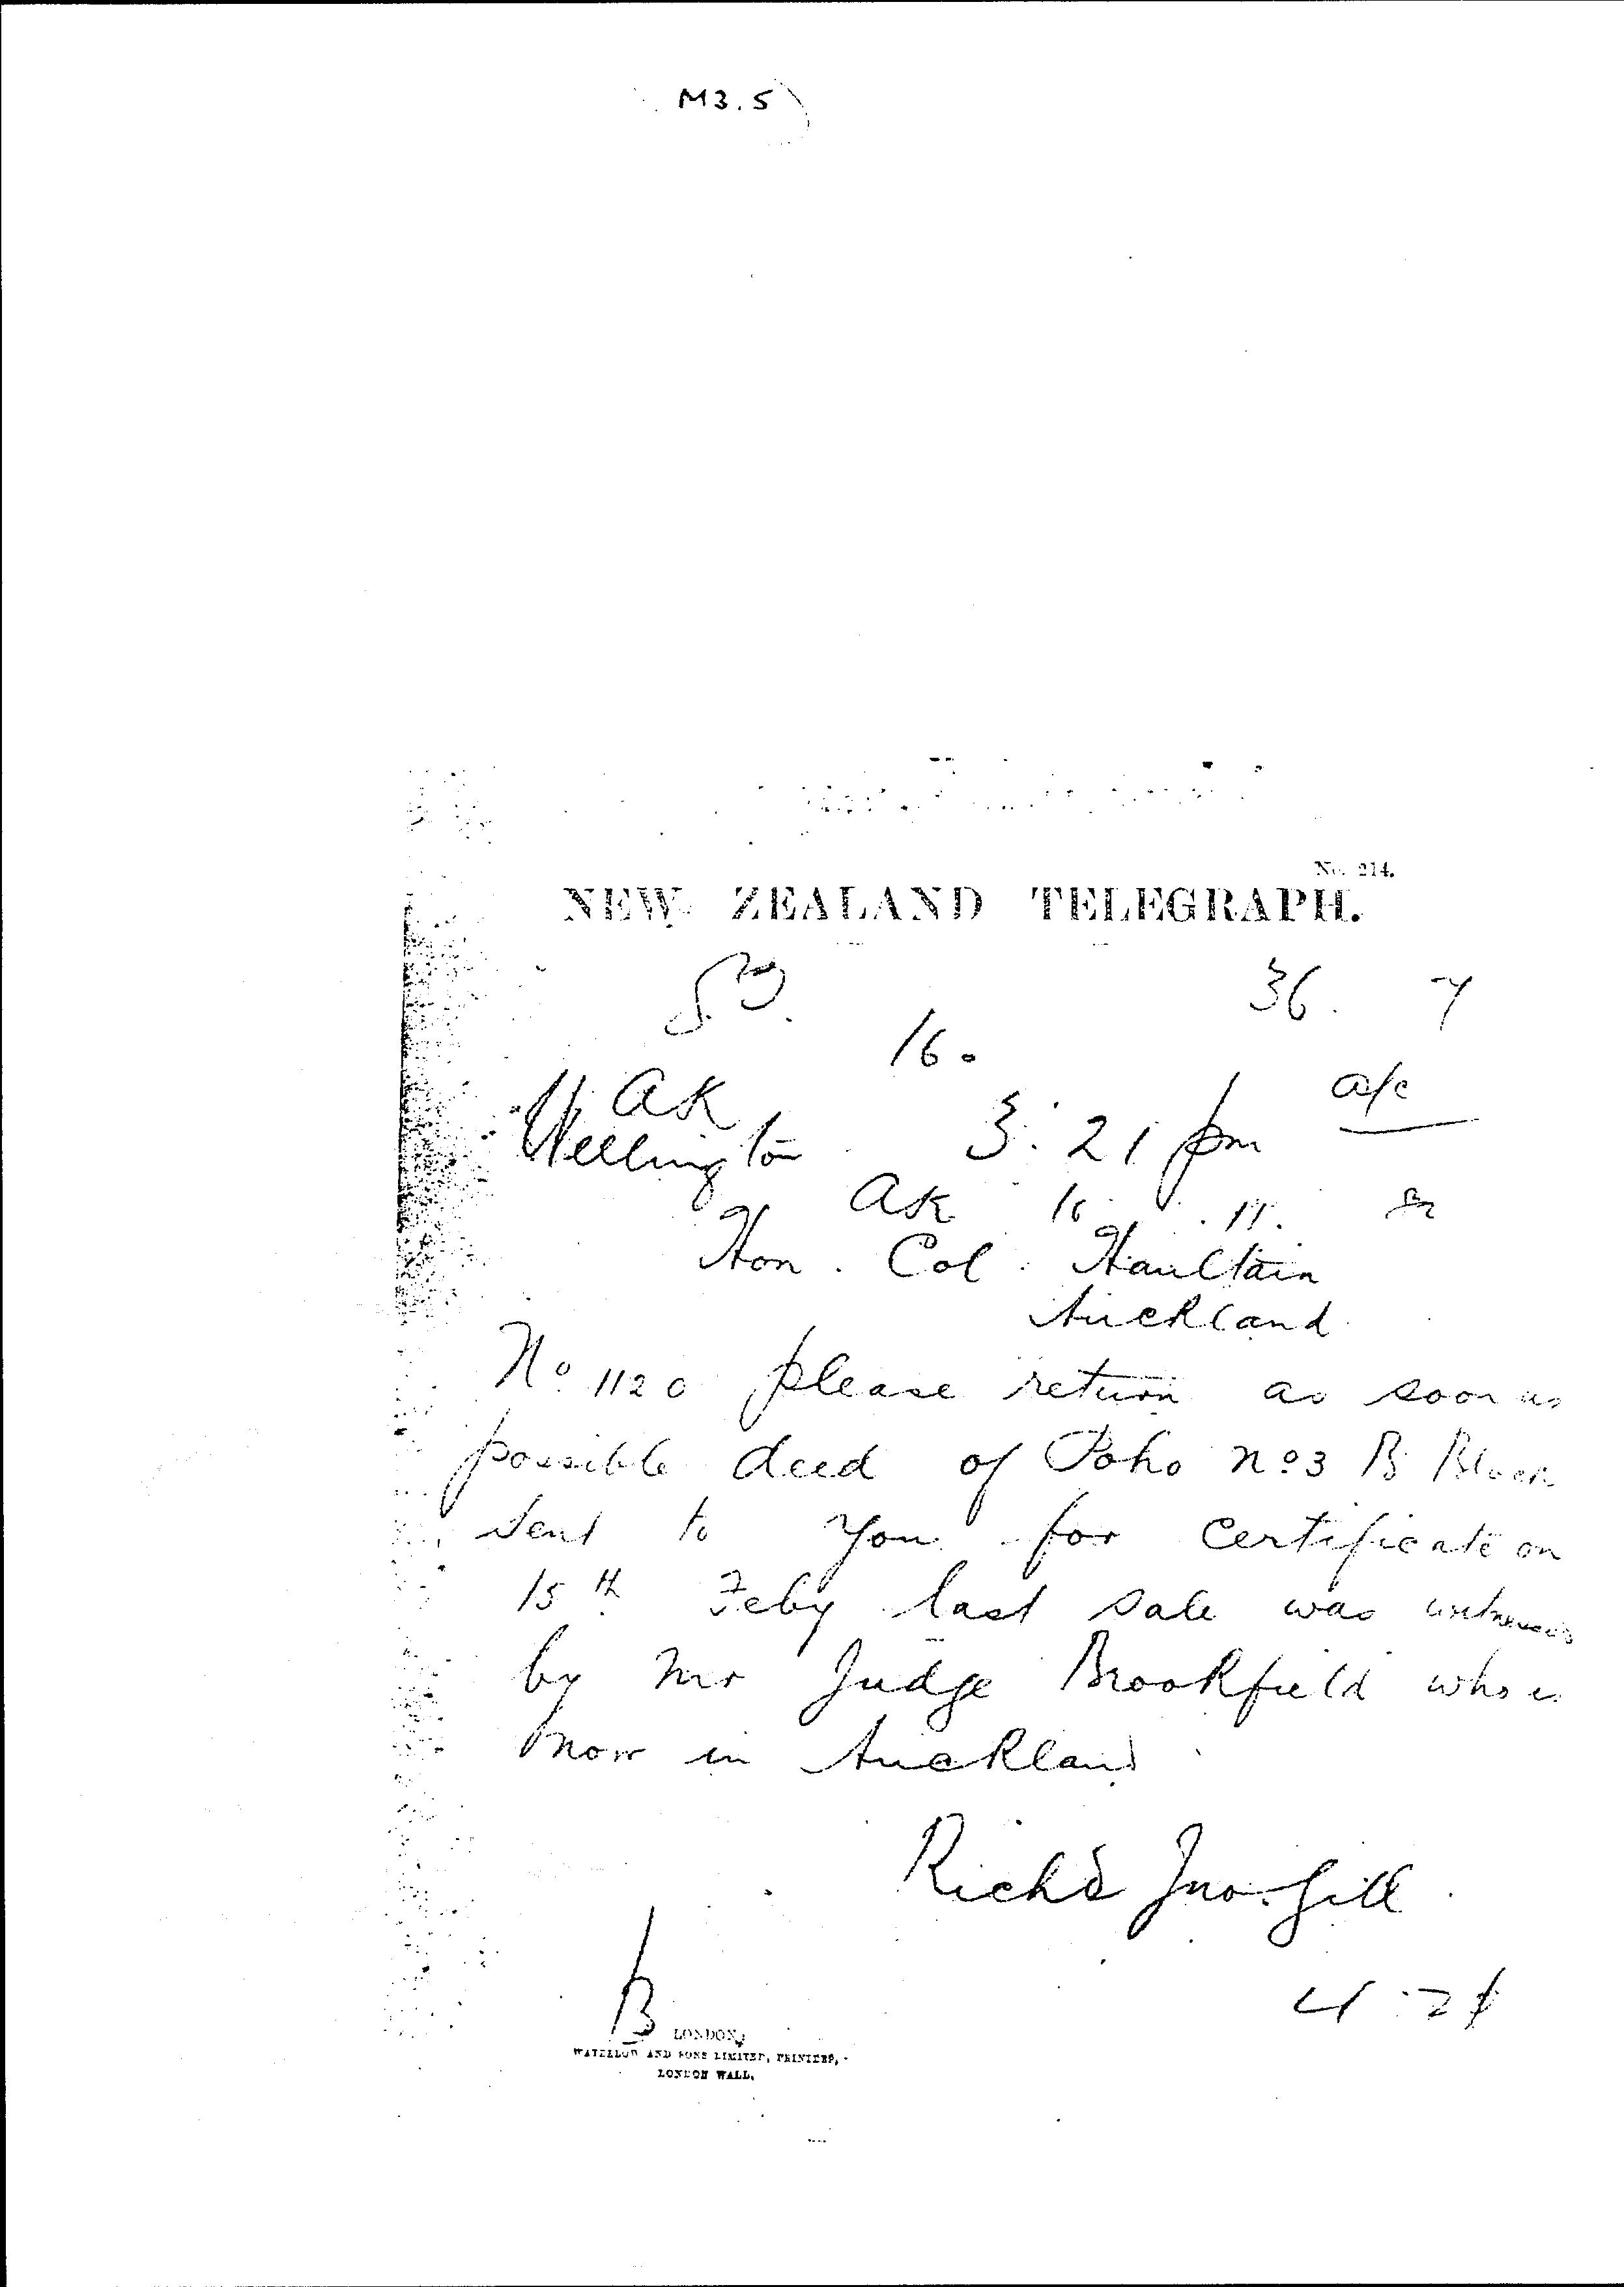 M3.5
No. 214.
NEW ZEALAND TELEGRAPH.
36. 7
16.
AK a/c
Wellington 3:21 pm
AK 16 11.
Hon. Col. Haultain
Auckland
No 1120 please return as soon as
possible deed of Poho No 3 B Block
sent to you for certificate on
15th Feby last sale was witnessed
by Mr Judge Brookfield who is
now in Auckland
Richd Jno. Gill
B
LONDON:
WATERLOW AND SONS LIMITED, PRINTERS,
LONDON WALL.